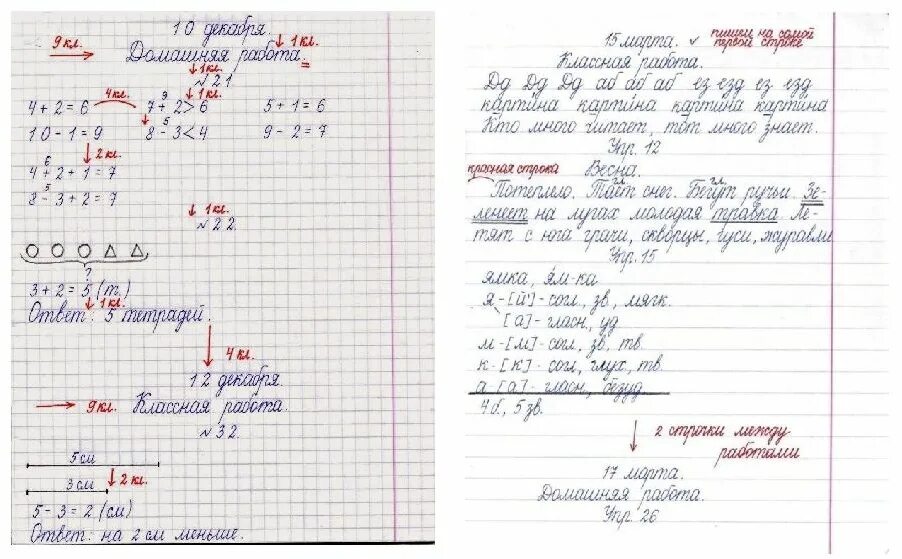 10 декабря.
9 кл. Домашняя работа. 1 кл.
1 кл.
№ 21
4 кл. 9 1 кл.
4 + 2 = 6 7 + 2 > 6 5 + 1 = 6
5
10 - 1 = 9 8 - 3 < 4 9 - 2 = 7
2 кл.
6
4 + 2 + 1 = 7
5
8 - 3 + 2 = 7
1 кл.
№ 22.
?
3 + 2 = 5 (т.)
1 кл.
Ответ: 5 тетрадей.
4 кл.
12 декабря.
9 кл. Классная работа.
№ 32.
5 см
3 см 2 кл.
5 - 3 = 2 (см)
Ответ: на 2 см меньше.
15 марта. ✓ пишем на самой
первой строке
Классная работа.
Дд Дд Дд аб аб аб ез езд ез езд
картина картина картина картина
Кто много читает, тот много знает.
Упр. 12
красная строка Весна.
гл. гл.
Потеплело. Тает снег. Бегут ручьи. Зе-
ленеет на лугах молодая травка. Ле-
тят с юга грачи, скворцы, гуси, журавли
Упр. 15
ямка, ям-ка
я - [й'] - согл., зв., мягк.
[а] - гласн., уд.
м - [м] - согл., зв., тв.
к - [к] - согл., глух., тв.
а - [а] - гласн., безуд.
4 б., 5 зв.
2 строчки между
работами
17 марта.
Домашняя работа.
Упр. 26